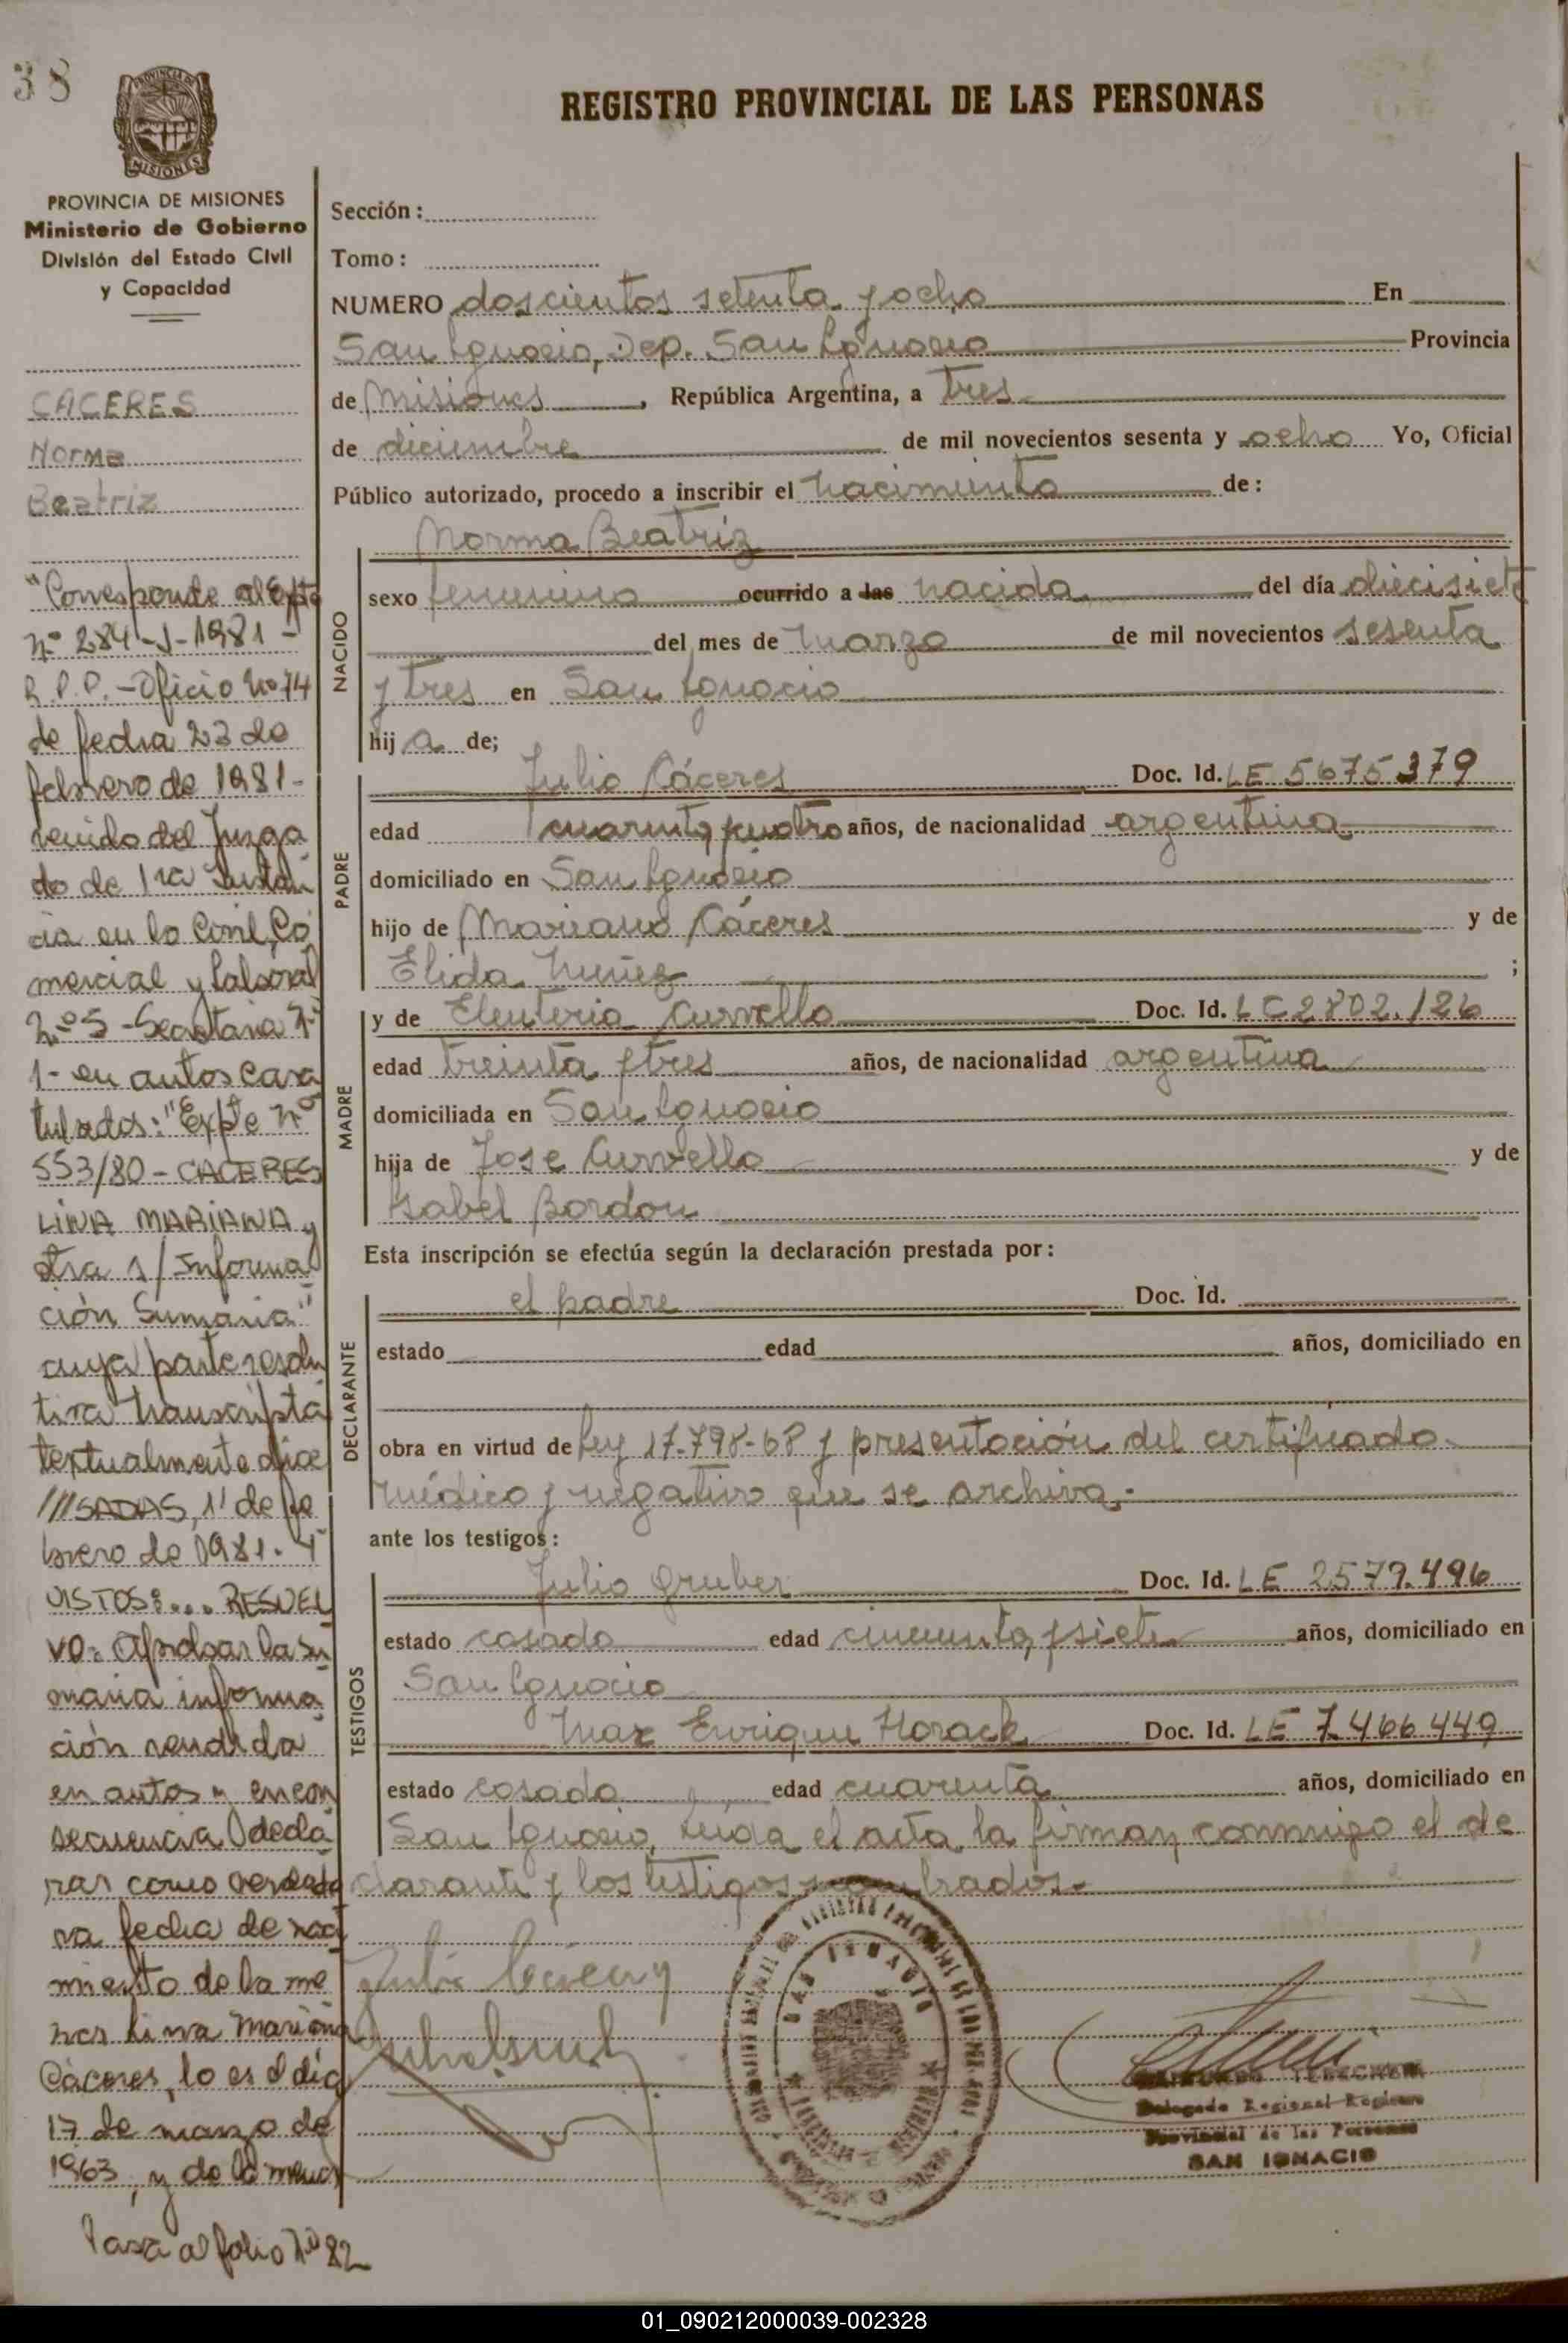 38
PROVINCIA DE MISIONES
REGISTRO PROVINCIAL DE LAS PERSONAS
PROVINCIA DE MISIONES
Ministerio de Gobierno
División del Estado Civil
y Capacidad
CACERES
Norma
Beatriz
"Corresponde al Expte
nº 284-J-1981-
R.P.P.-Oficio No 74
de fecha 23 de
febrero de 1981-
venido del Juzga
do de 1ra Instan
cia en lo Civil, Co
mercial y Laboral
Nº 5 - Secretaria Nº
1- en autos cara
tulados: "Expte nº
553/80 - CACERES
LINA MARIANA y
otra s/ Informa
ción Sumaria"
cuya parte resolu
tiva transcripta
textualmente dice
///SADAS, 1' de fe
brero de 1981.- Y
VISTOS:.... RESUEL
VO: Aprobar la su
maria informa
ción rendida
en autos y en con
secuencia decla
rar como verdade
ra fecha de naci
miento de la me
nor Lina Mariana
Cáceres, lo es el día
17 de marzo de
1963, y de la menor
Pasa al folio Nº 82
Sección:
Tomo:
NUMERO doscientos setenta y ocho En
San Ignacio, Dep. San Ignacio Provincia
de Misiones, República Argentina, a tres
de diciembre de mil novecientos sesenta y ocho Yo, Oficial
Público autorizado, procedo a inscribir el nacimiento de:
Norma Beatriz
NACIDO
sexo femenino ocurrido a las nacida del día diecisiete
del mes de marzo de mil novecientos sesenta
y tres en San Ignacio
hij a de;
PADRE
Julio Cáceres Doc. Id. LE 5675379
edad cuarenta y cuatro años, de nacionalidad argentina
domiciliado en San Ignacio
hijo de Mariano Cáceres y de
Elida Nuñez ;
MADRE
y de Eleuteria Curvello Doc. Id. LC 2802.126
edad treinta y tres años, de nacionalidad argentina
domiciliada en San Ignacio
hija de Jose Curvello y de
Isabel Bordon
Esta inscripción se efectúa según la declaración prestada por:
DECLARANTE
el padre Doc. Id.
estado edad años, domiciliado en
obra en virtud de Ley 17.798-68 y presentación del certificado
médico y negativo que se archiva.-
ante los testigos:
TESTIGOS
Julio Gruber Doc. Id. LE 2579.496
estado casado edad cincuenta y siete años, domiciliado en
San Ignacio
Max Enrique Horack Doc. Id. LE 7.466.449
estado casado edad cuarenta años, domiciliado en
San Ignacio, Leida el acta, la firman conmigo el de
clarante y los testigos nombrados.-
SAN IGNACIO
Delegado Regional Registro
Provincial de las Personas
SAN IGNACIO
01_090212000039-002328